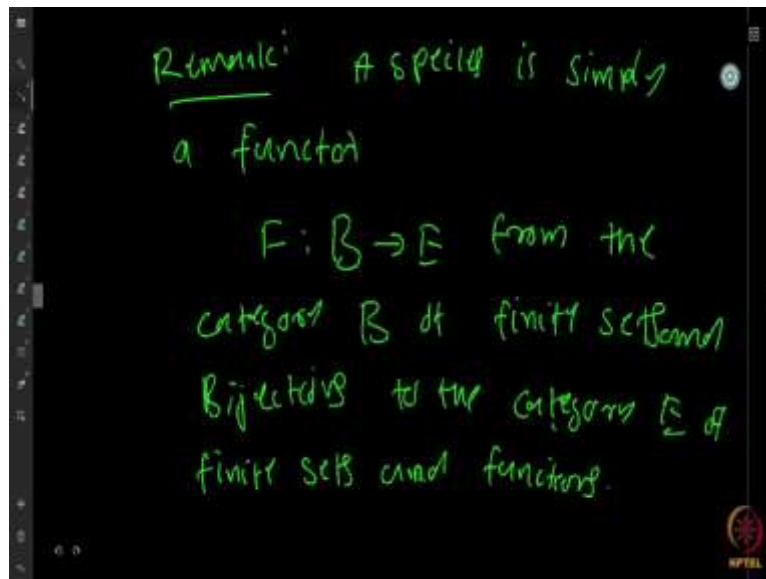 Remark: A species is simply
a functor
F: B → E from the
category B of finite sets and
Bijections to the category E of
finite sets and functions.
NPTEL